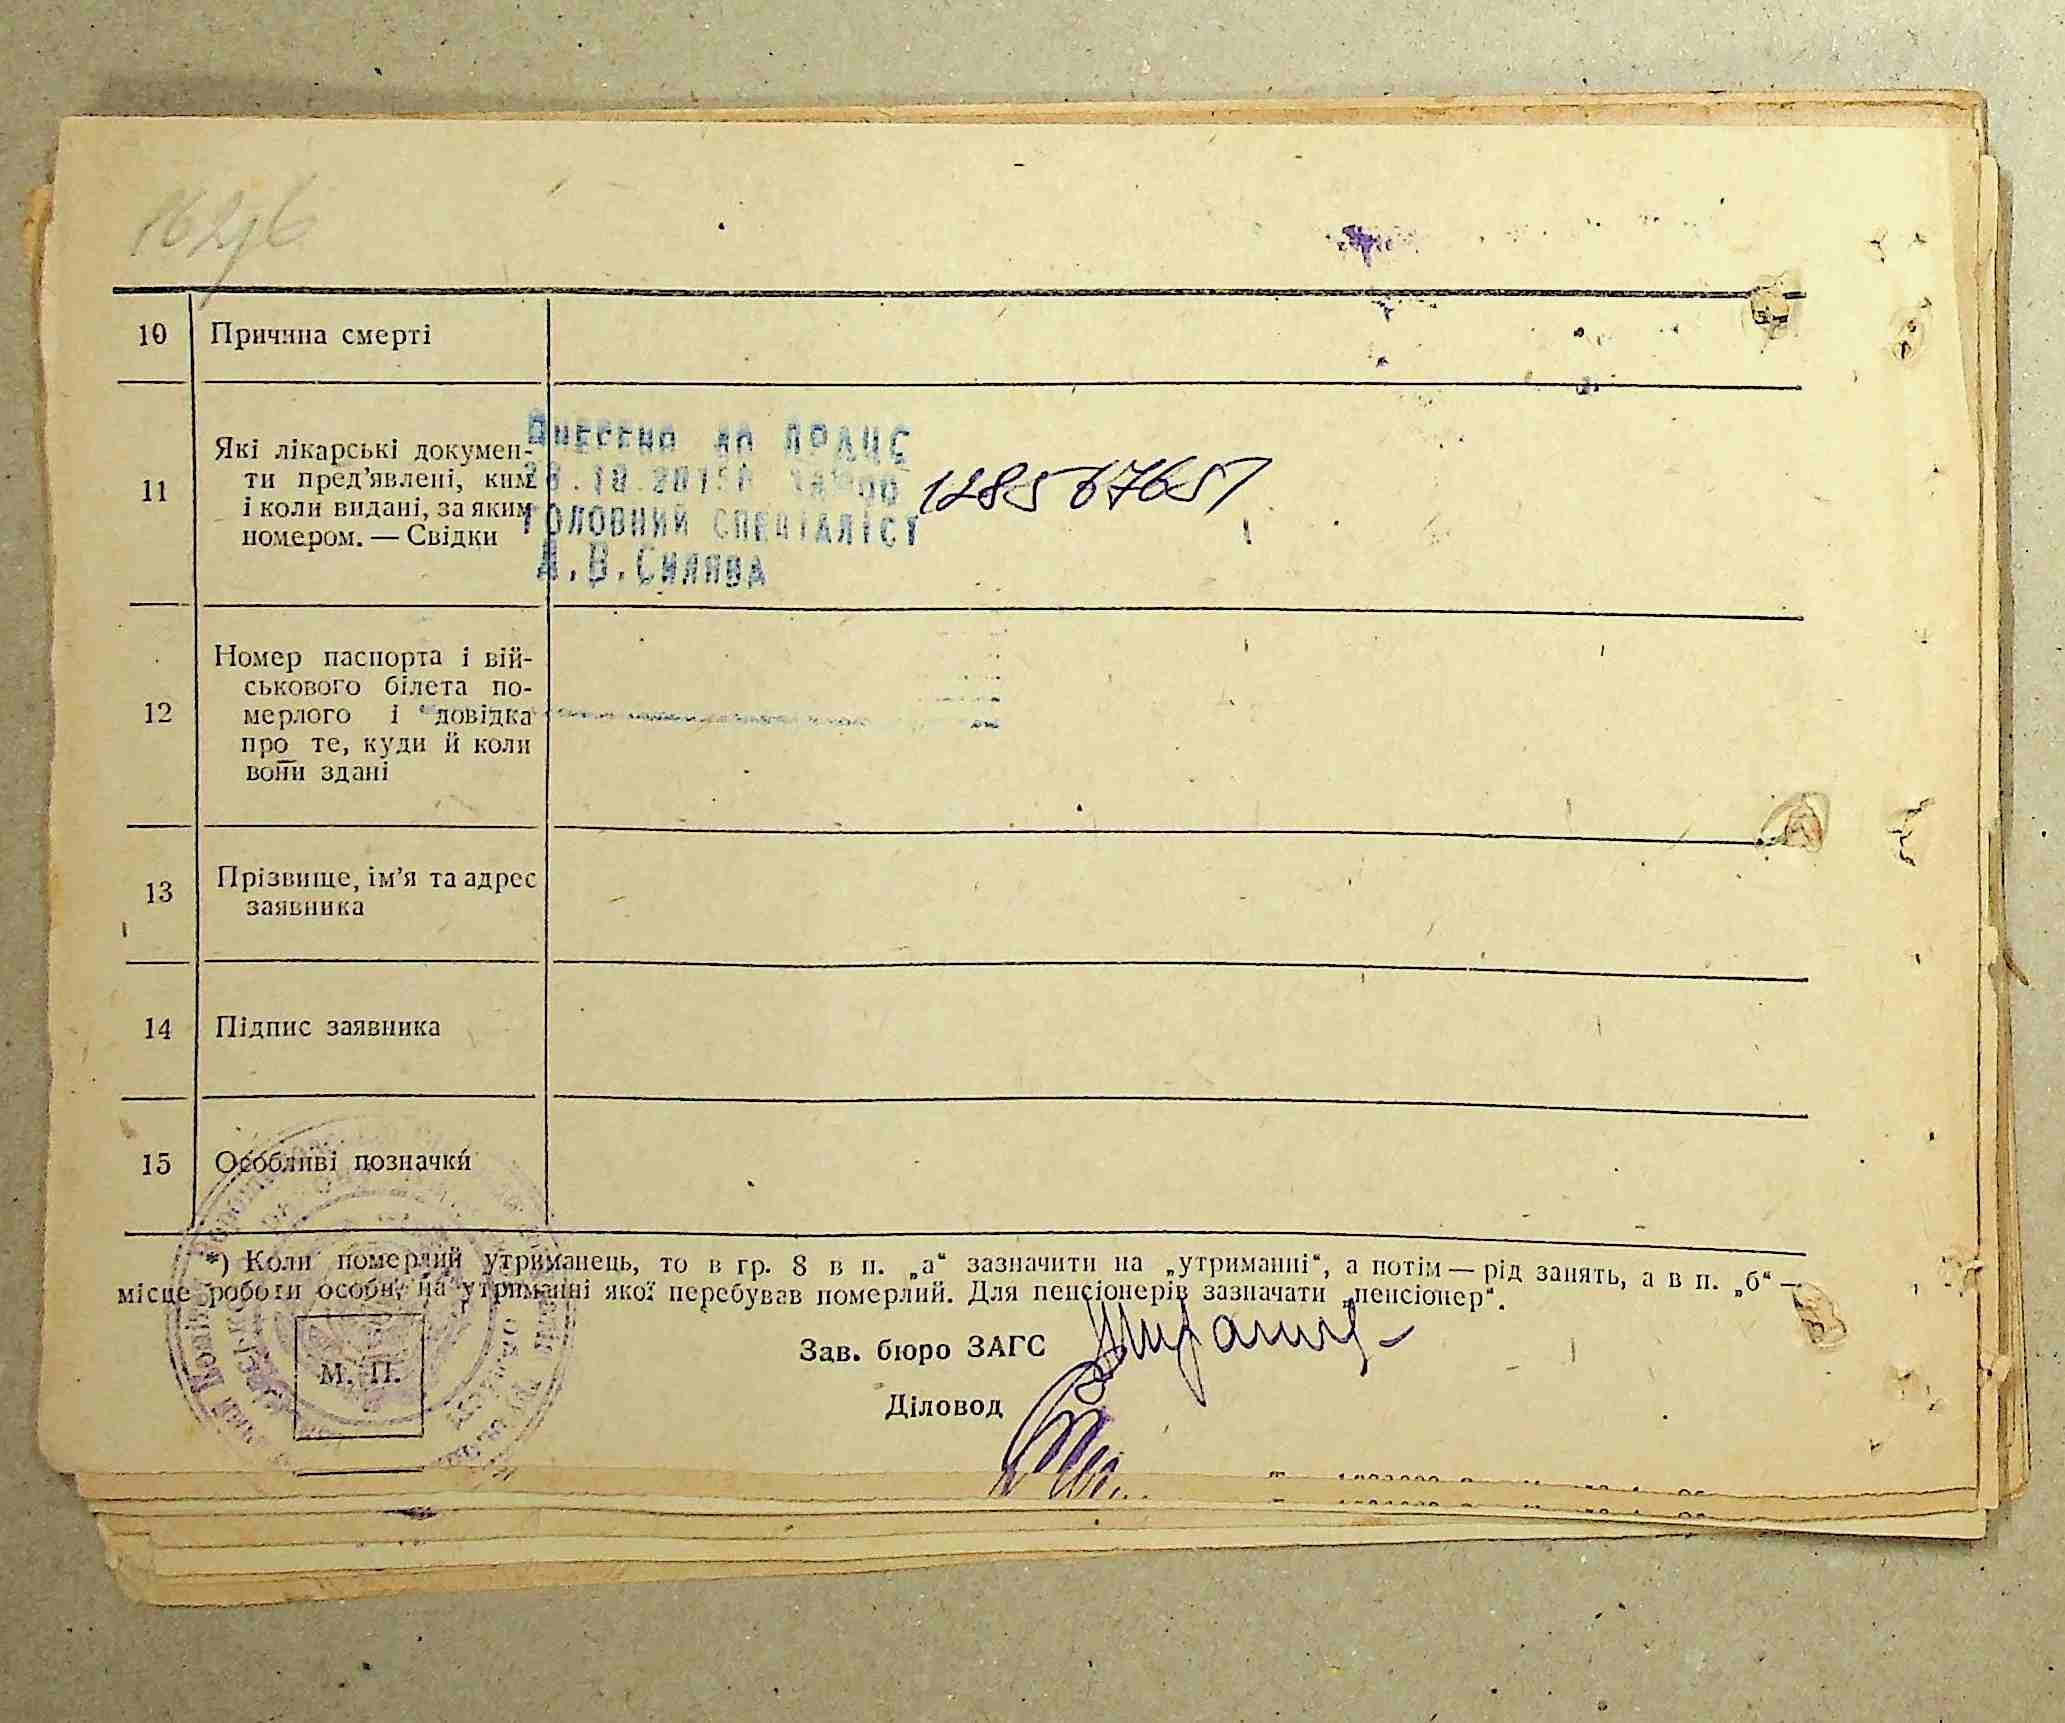 10 Причина смерті
11 Які лікарські докумен-
ти пред’явлені, ким
і коли видані, за яким
номером. — Свідки
Внесено до ДРАЦС
ГОЛОВНИЙ СПЕЦІАЛІСТ
128567651
12 Номер паспорта і вій-
ськового білета по-
мерлого і довідка
про те, куди й коли
вони здані
13 Прізвище, ім’я та адрес
заявника
14 Підпис заявника
15 Особливі позначки
*) Коли померлий утриманець, то в гр. 8 в п. „а“ зазначити на „утриманні“, а потім — рід занять, а в п. „б“ —
місце роботи особи, на утриманні якої перебував померлий. Для пенсіонерів зазначати „пенсіонер“.
Зав. бюро ЗАГС
Діловод
М. П.